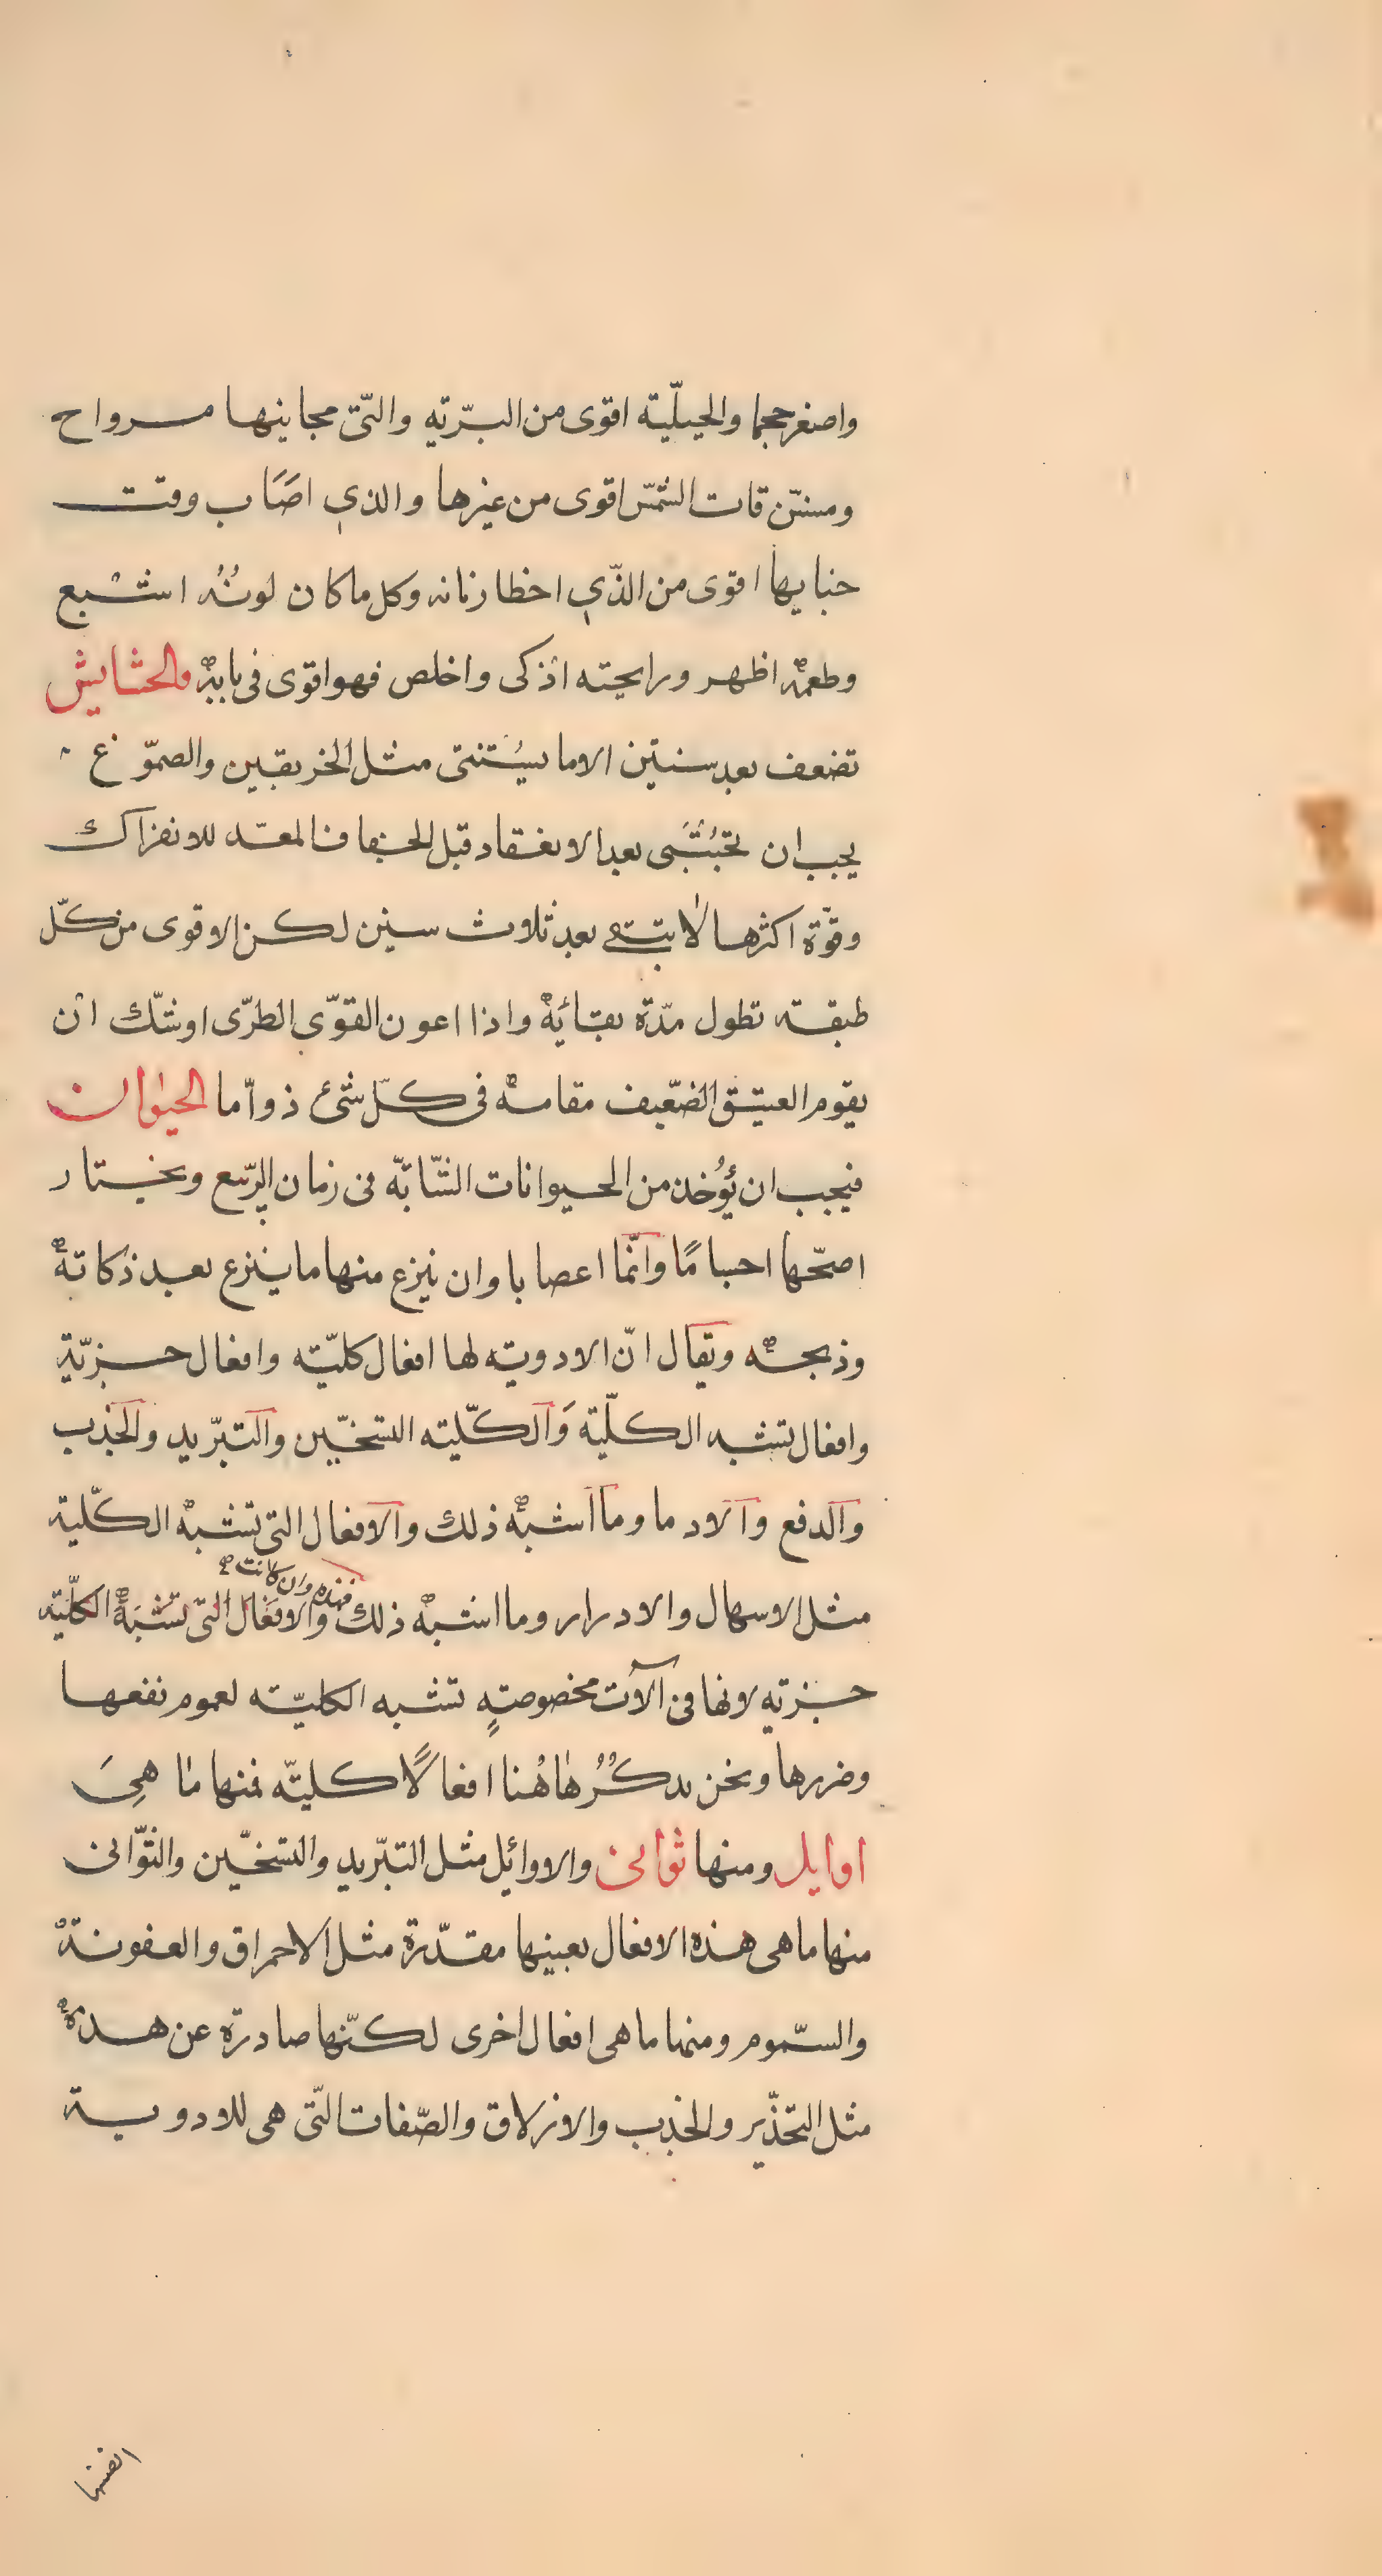 واصغر حجما والجبلّية اقوى من البرّتيه والتّى مجاينها مرواح
ومسّن قات الشّمس اقوى من غيرها والذي اصَاب وقتت
جنايها اقوى من الذّي اخطا زنانه وكل ماكان لونُهُ اشْبع
وطعمهُ اظهر ورايحته اذكى واخلص فهو اقوى فى بابهٖ والحشايش
تضعف بعد سنتين الا ما يسُتثنى مثل الخربقين والصموّغ
يجب ان تجُتَبَى بعد الانعقاد قبل الجفاف المعدّ للانفراك
وقوّة اكثرها لا تبتقى بعد ثلاث سنين لكن الاقوى من كلّ
طبقته تطول مدّة بقائهٖ واذا اعون القوّي الطرّى اوشّك ان
يقوم العتيق الضّعيف مقامهٗ فى كلّ شئ ذ وامّا الحيوان
فيجب ان يُؤخذ من الحيوانات الشّابّة فى زمان الرّبيع ويختار
اصحّها اجسامًا واتمّا اعصابا وان ينزع منها ما ينزع بعد ذكاتهٖ
وذبحهٖ ويقال انّ الادويته لها افعال كليّته وافعال جزيّة
وافعال تشبه الكلّية وَالكلّيته التسخّين والتبرّيد والجذب
والدفع والادما وما اشبهٗ ذلك والافعال التى تشبهٗ الكلّية
مثل الاسهال والادرار وما اشبهٗ ذلك والافعَال التى تشبَهٗ الكلّيته
فهذه وان كانت
جزئيه لانها فى الآت مخصوصتهٍ تشبه الكليّته لعموم نفعها
وضررها ونحن نذكُرُ هاهُنا افعالًا كليتّه فمنها ما هِىَ
اوايل ومنها ثوانى والاوائل مثل التبرّيد والتسخّين والثوّانى
منها ما هى هذه الافعال بعينها مقدّرة مثل الاحراق والعفونهٗ
والسّموم ومنها ما هى افعال اخرى لكنّها صادرة عن هذهٖ
مثل التخدّير والجذب والازلاق والصّفات التّى هى للادوية